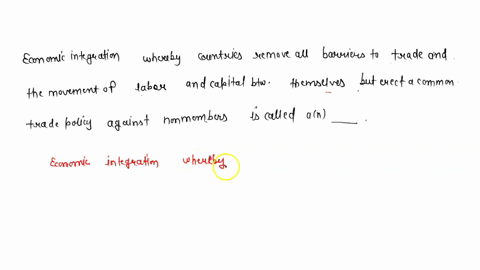 Economic integration whereby countries remove all barriers to trade and
the movement of labor and capital btw. themselves but erect a common
trade policy against nonmembers is called a(n) ___.
Economic integration whereby